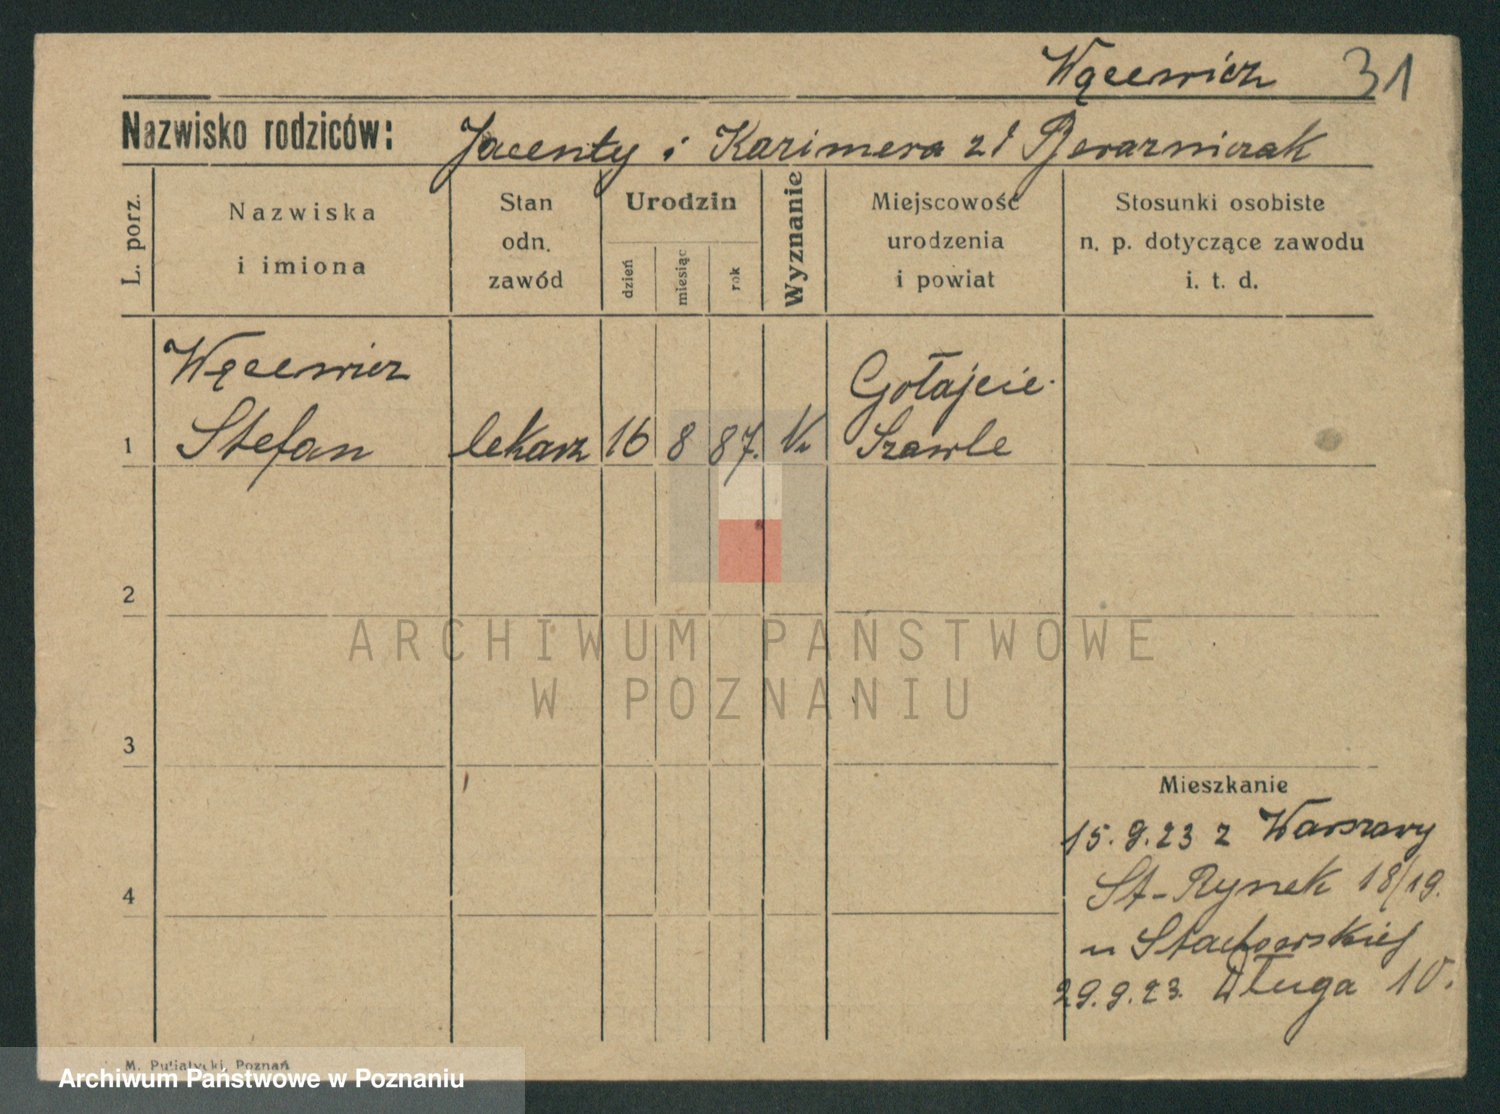 Węcewicz 31
Nazwisko rodziców: Jacenty i Kazimera zd
L. porz.
Nazwiska
i imiona
Stan
odn.
zawód
Urodzin
dzień
miesiąc
rok
Wyznanie
Miejscowość
urodzenia
i powiat
Stosunki osobiste
n. p. dotyczące zawodu
i. t. d.
Węcewicz
Gołajcie
1 Stefan lekarz 16 8 87. Szawle
2
ARCHIWUM PAŃSTWOWE
W POZNANIU
3
Mieszkanie
15.9.23 z Warszawy
4
St-Rynek 18/19.
u
29.9.23. Długa 10.
M. Putiatycki, Poznań
Archiwum Państwowe w Poznaniu